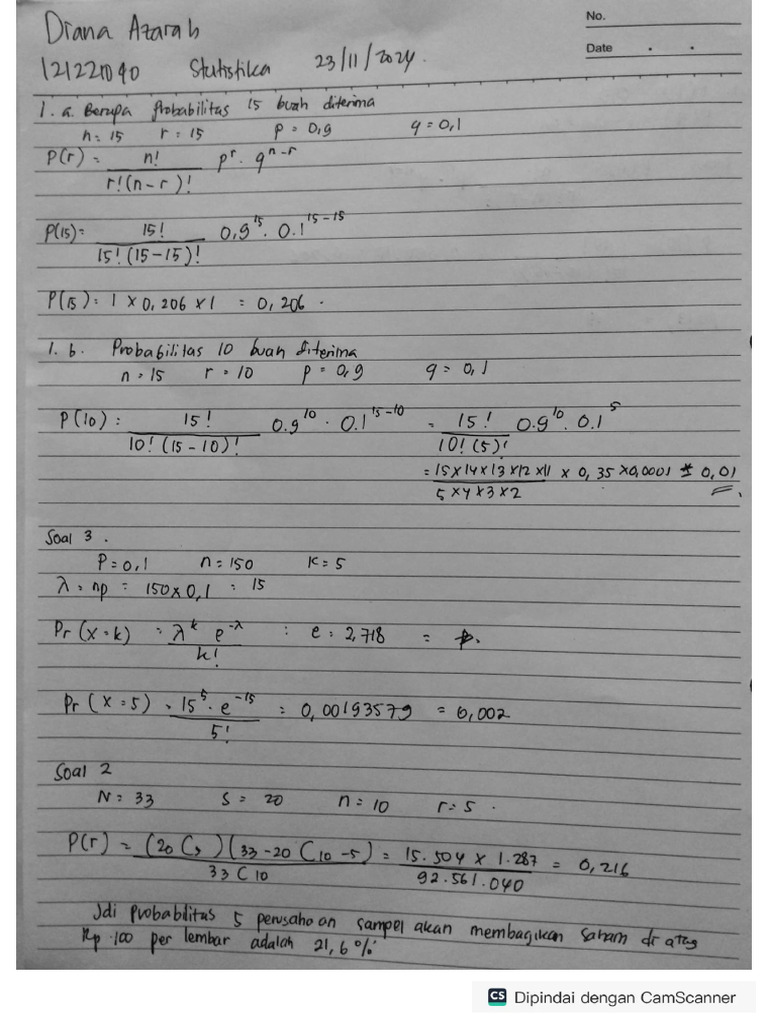 No.
Date . .
Diana Azarah
121221040 Statistika 23/11/2024.
1. a. Berapa Probabilitas 15 buah diterima
n = 15 r = 15 p = 0,9 q = 0,1
P(r) = n! / r!(n-r)! p^r . q^n-r
P(15) = 15! / 15!(15-15)! 0,9^15 . 0.1^15-15
P(15) = 1 x 0,206 x 1 = 0,206 .
1. b. Probabilitas 10 buah diterima
n = 15 r = 10 p = 0,9 q = 0,1
P(10) = 15! / 10!(15-10)! 0.9^10 . 0.1^15-10 = 15! / 10!(5)! 0.9^10 . 0.1^5
= 15x14x13x12x11 / 5x4x3x2 x 0,35 x 0,0001 ± 0,01
Soal 3 .
P = 0,1 n = 150 k = 5
λ = np = 150 x 0,1 = 15
Pr (x = k) = λ^k e^-λ / k! : e = 2,718 =
Pr (x = 5) = 15^5 . e^-15 / 5! = 0,00193579 = 0,002
Soal 2
N = 33 S = 20 n = 10 r = 5 .
P(r) = (20 C 5)(33-20 C 10-5) / 33 C 10 = 15.504 x 1.287 / 92.561.040 = 0,216
Jdi probabilitas 5 perusahaan sampel akan membagikan saham di atas
Rp 100 per lembar adalah 21,6%
CS Dipindai dengan CamScanner